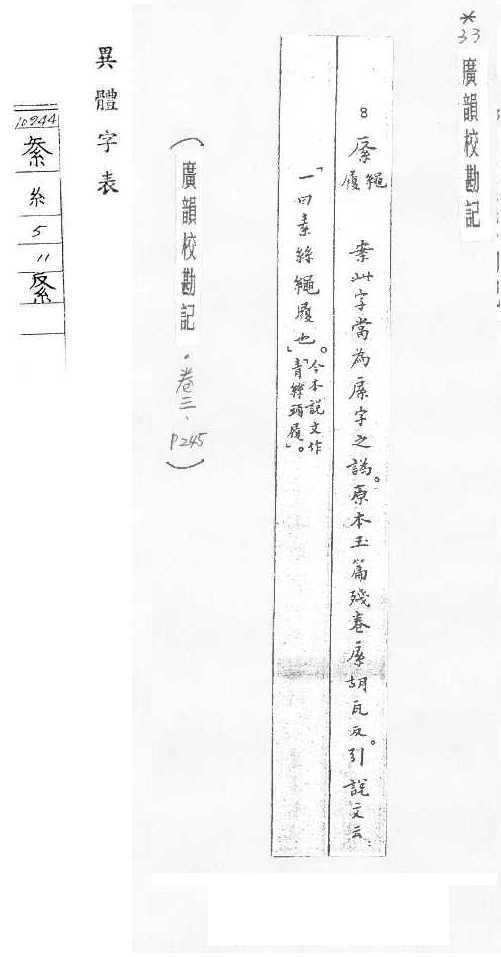 *33 廣韻校勘記
8 繩履 案此字當為字之譌。原本玉篇殘卷胡瓦反。引說文云
「一曰素絲繩履也」。今本說文作「青絲頭履」。
(廣韻校勘記．卷三、P245)
異體字表
10244 糸 5 〃